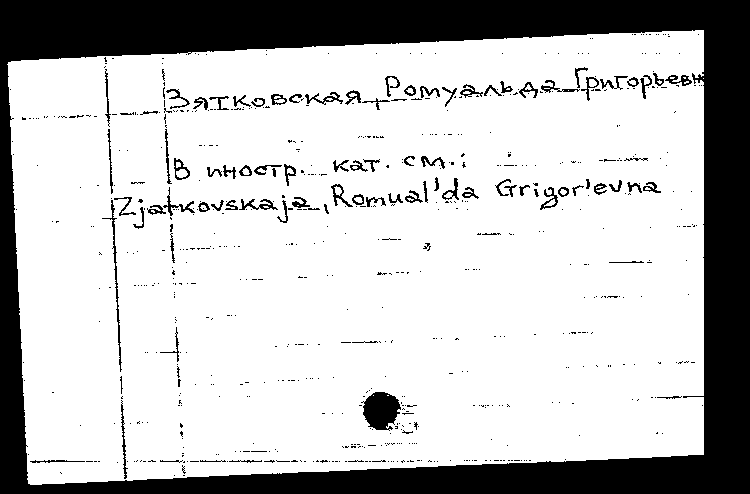 Зятковская, Ромуальда Григорьевн
В иностр. кат. см.:
Zjatkovskaja, Romual'da Grigor'evna